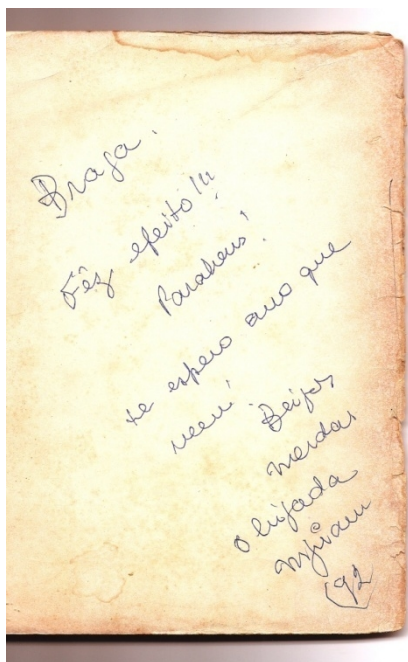 Braga.
Fêz efeito!!!
Parabens!
te espero ano que
vem!
Beijos
merdas
obrigada
Myriam
92